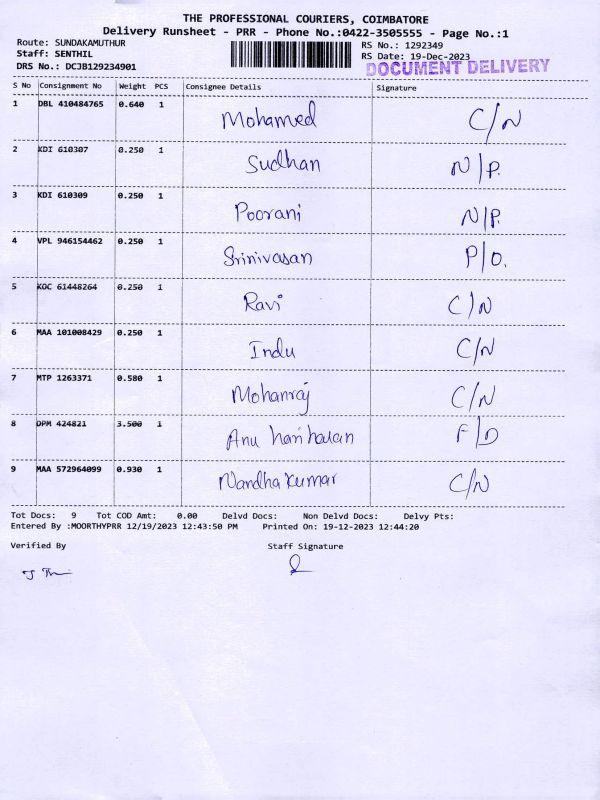 THE PROFESSIONAL COURIERS, COIMBATORE
Delivery Runsheet - PRR - Phone No.:0422-3505555 - Page No.:1
Route: SUNDAKAMUTHUR RS No.: 1292349
Staff: SENTHIL RS Date: 19-Dec-2023
DRS No.: DCJB129234901 DOCUMENT DELIVERY
S No Consignment No Weight PCS Consignee Details Signature
1 DBL 410484765 0.640 1 Mohamed C/N
2 KDI 610307 0.250 1 Sudhan N/P.
3 KDI 610309 0.250 1 Poorani N/P.
4 VPL 946154462 0.250 1 Srinivasan P/O.
5 KOC 61448264 0.250 1 Ravi C/N
6 MAA 101008429 0.250 1 Indu C/N
7 MTP 1263371 0.580 1 Mohanraj C/N
8 DPM 424821 3.500 1 Anu hariharan F/D
9 MAA 572964099 0.930 1 Nandha Kumar C/N
Tot Docs: 9 Tot COD Amt: 0.00 Delvd Docs: Non Delvd Docs: Delvy Pts:
Entered By :MOORTHYPRR 12/19/2023 12:43:50 PM Printed On: 19-12-2023 12:44:20
Verified By Staff Signature